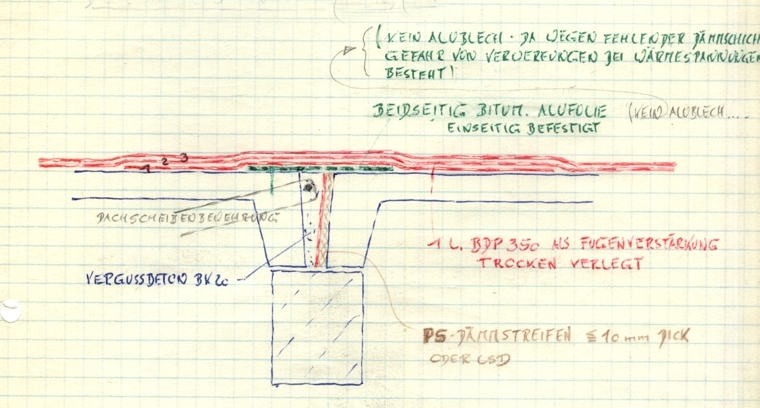 (KEIN ALUBLECH - DA WEGEN FEHLENDER DÄMMSCHICH
GEFAHR VON VERWERFUNGEN BEI WÄRMESPANNUNGEN
BESTEHT!
BEIDSEITIG BITUM. ALUFOLIE (KEIN ALUBLECH....
EINSEITIG BEFESTIGT
1 2 3
DACHSCHEIBENBEWEHRUNG
1 L. BDP 350 ALS FUGENVERSTÄRKUNG
TROCKEN VERLEGT
VERGUSSBETON BK 20
PS-DÄMMSTREIFEN ≦ 10 mm DICK
ODER LSD